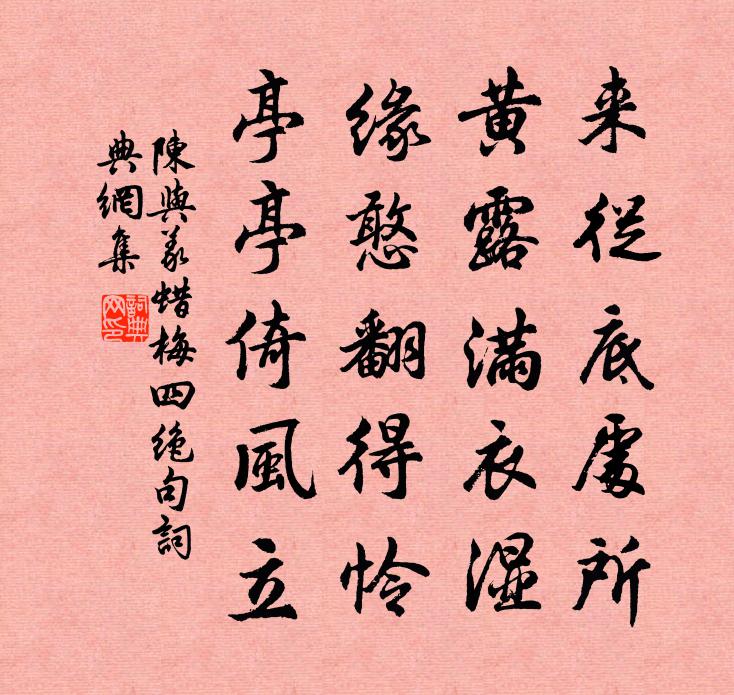 来從底處所
黄露滿衣湿
緣憨翻得怜
亭亭倚風立
陳與義蜡梅四绝句詞
典網集
詞典網印